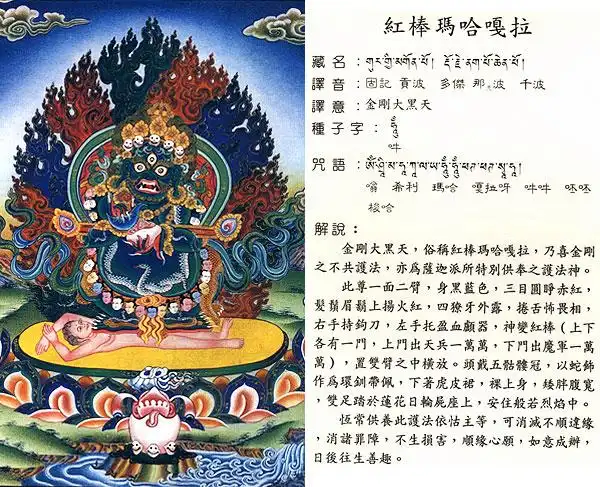 紅棒瑪哈嘎拉
藏名：གུར་གྱི་མགོན་པོ། རྡོ་རྗེ་ནག་པོ་ཆེན་པོ།
譯音：固記 貢波 多傑 那波 千波
譯意：金剛大黑天
種子字：ཧཱུྃ
吽
咒語：ༀ་ཤྲཱི་མ་ཧཱ་ཀཱ་ལ་ཡ་ཧཱུྃ་ཧཱུྃ་ཕཊ་ཕཊ་སྭཱ་ཧཱ།
嗡 希利 瑪哈 嘎拉呀 吽吽 呸呸
梭哈
解說：
金剛大黑天，俗稱紅棒瑪哈嘎拉，乃喜金剛
之不共護法，亦為薩迦派所特別供奉之護法神。
此尊一面二臂，身黑藍色，三目圓睜赤紅，
髮鬚眉鬍上揚火紅，四獠牙外露，捲舌怖畏相，
右手持鉤刀，左手托盈血顱器，神變紅棒（上下
各有一門，上門出天兵一萬萬，下門出魔軍一萬
萬），置雙臂之中橫放。頭戴五骷髏冠，以蛇飾
作為環釧帶佩，下著虎皮裙，裸上身，矮胖腹寬
，雙足踏於蓮花日輪屍座上，安住般若烈焰中。
恆常供養此護法依怙主等，可消滅不順違緣
，消諸罪障，不生損害，順緣心願，如意成辦，
日後往生善趣。